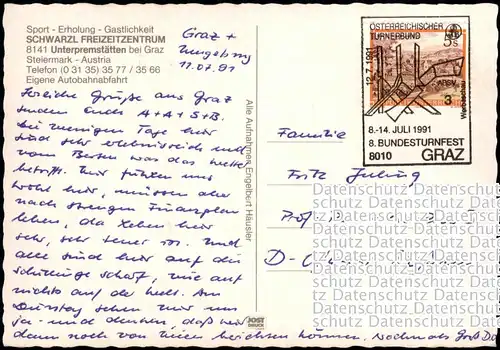 Sport - Erholung - Gastlichkeit
SCHWARZL FREIZEITZENTRUM
8141 Unterpremstätten bei Graz
Steiermark - Austria
Telefon (0 31 35) 35 77 / 35 66
Eigene Autobahnabfahrt
Graz +
Umgebung
11.07.91
Herzliche Grüße aus Graz
senden Euch A+A+S+B.
Die wenigen Tage hier
sind sehr erlebnisreich und
vom Besten was das Wetter
betrifft. Wir fühlen uns
wohl hier, müssen aber
nach strengem Finanzplan
leben, da Leben hier
sehr, sehr teuer ist. Und
alle sind hier auf die
Schillinge scharf, wie auf
nichts auf der Welt. Am
Dienstag sehen wir uns
ja - und denken, daß wir
dann noch von hier berichten können. Nochmals Gruß
Alle Aufnahmen Engelbert Häusler
JOST
DRUCK
ÖSTERREICHISCHER
TURNERBUND
5s
12.7.1991
Werbeschau
8.-14. JULI 1991
8. BUNDESTURNFEST
8010 GRAZ
Familie
Fritz
D-
Datenschutz Datenschutz
Datenschutz Datenschutz
Datenschutz Datenschutz
Datenschutz Datenschutz
Datenschutz Datenschutz
Datenschutz Datenschutz
Datenschutz Datenschutz